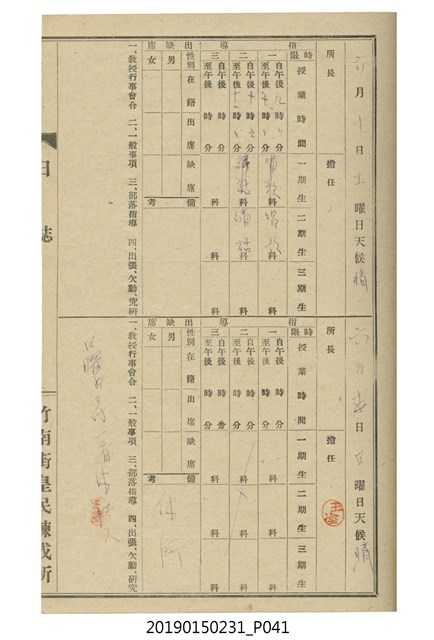 六月十日土曜日天候晴
所長　擔任
時限　授業時間　一期生　二期生　三期生
指導
一　自午後　時　分　至午後　時　分　科　科　科
二　自午後　時　分　至午後　時　分　科　科　科
三　自午後　時　分　至午後　時　分　科　科　科
出缺席　性別　在籍　出席　缺席　備考
男
女
一、教授行事會合　二、一般事項　三、部落指導　四、出張、欠勤、究研
六月　日日曜日天候晴
所長　擔任
時限　授業時間　一期生　二期生　三期生
指導
一　自午後　時　分　至午後　時　分　科　科　科
二　自午後　時　分　至午後　時　分　科　科　科
三　自午後　時　分　至午後　時　分　科　科　科
出缺席　性別　在籍　出席　缺席　備考
男
女
一、教授行事會合　二、一般事項　三、部落指導　四、出張、欠勤、究研
日誌
竹南街皇民鍊成所
20190150231_P041